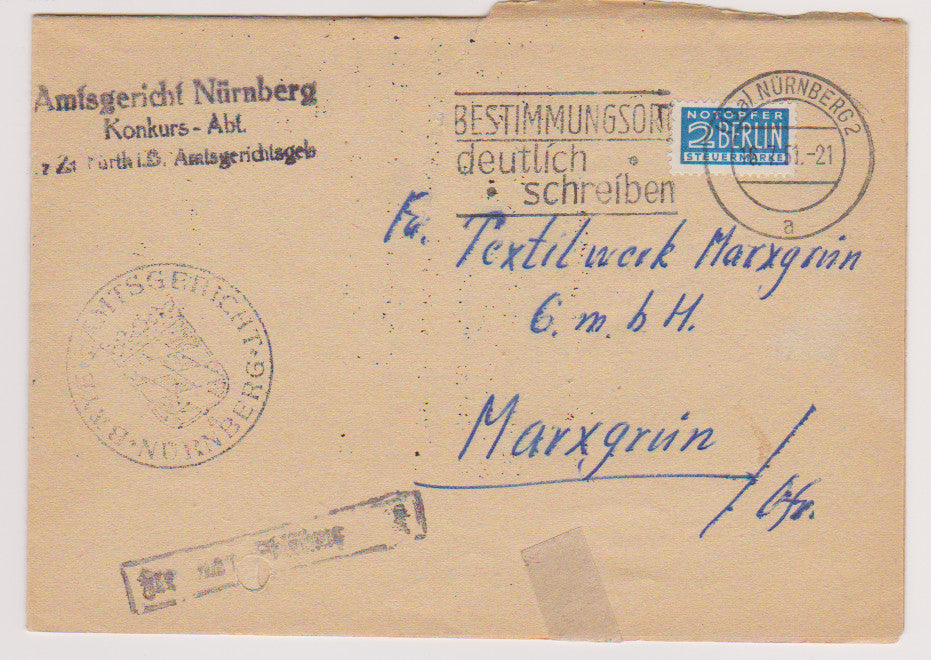 Amtsgericht Nürnberg
Konkurs-Abt.
z. Zt. Fürth i.B. Amtsgerichtsgeb
BESTIMMUNGSORT
deutlich
schreiben
NOTOPFER
2 BERLIN
STEUERMARKE
NÜRNBERG 2
51.-21
a
Fa. Textilwerk Marxgrün
G.m.b H.
Marxgrün
/ Ofr.
BAYR. AMTSGERICHT
NÜRNBERG